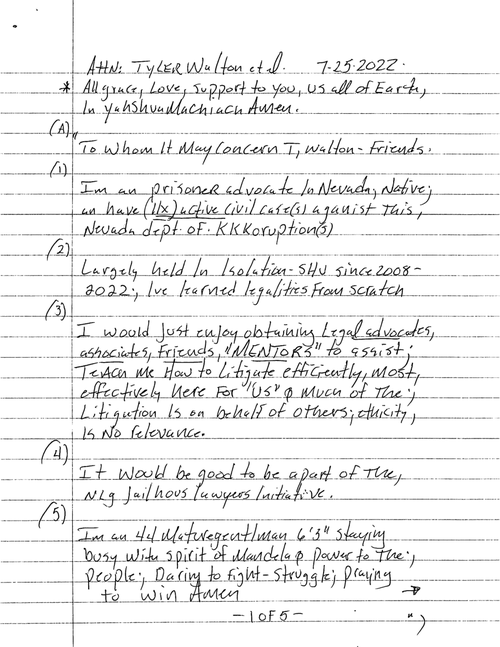 Attn: Tyler Walton et al. 7-25-2022.
* All grace, Love, support to you, us all of Earth,
In Yahshua Machiach Amen.
(A) "
To Whom It May Concern T, Walton - Friends.
(1)
Im an prisoner advocate In Nevada; Native;
an have (11x) active civil case(s) aganist This,
Nevada dept of KKKoruption(s)
(2)
Largely held In Isolation-SHU since 2008-
2022; Ive learned legalities From scratch
(3)
I would Just enjoy obtaining Legal advocates,
associates, Friends, "MENTORS" to assist;
Teach me How to Litigate efficiently, most,
effectively here For "US" & Much of The;
Litigation Is on behalf of others; ethicity,
Is No relevance.
(4)
It Would be good to be a part of The,
NLg Jailhous Lawyers Initiative.
(5)
Im an 44 Mature gentlman 6'3" staying
busy With spirit of Mandela & Power to The;
people; Daring to fight-struggle; praying
to win Amen →
- 1 OF 5 - ";